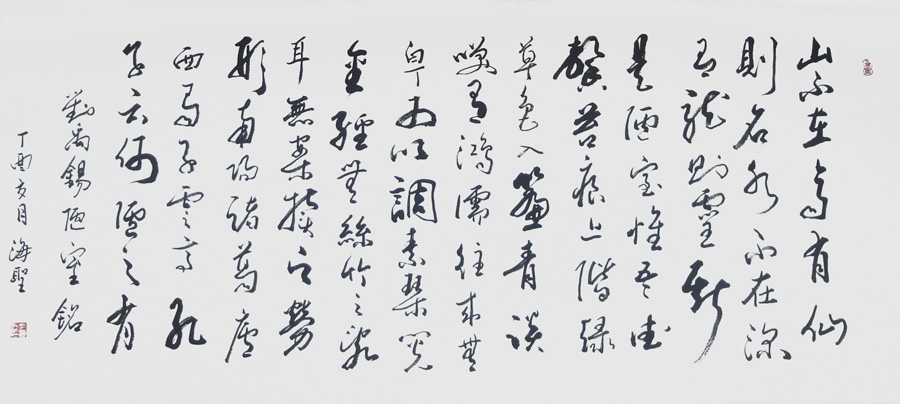 山不在高有仙
則名水不在深
有龍則靈斯
是陋室惟吾德
馨苔痕上階綠
草色入簾青談
笑有鴻儒往來無
白丁可以調素琴閱
金經無絲竹之亂
耳無案牘之勞
形南陽諸葛廬
西蜀子雲亭孔
子云何陋之有
劉禹錫陋室銘
丁酉亥月 海聖